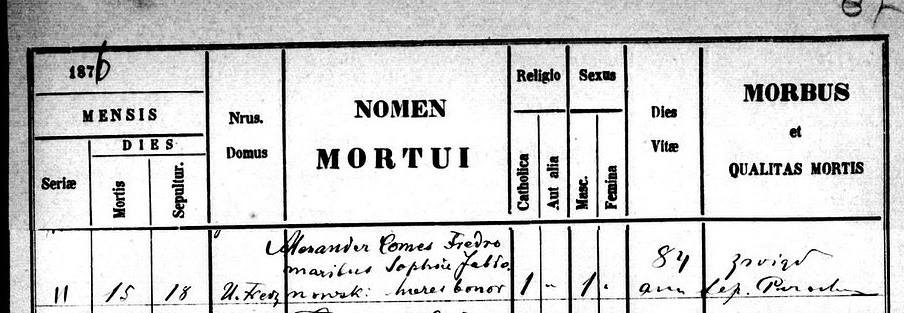 1876
MENSIS
DIES
Seriæ
Mortis
Sepultur.
Nrus.
Domus
NOMEN
MORTUI
Religio
Catholica
Aut alia
Sexus
Masc.
Femina
Dies
Vitæ
MORBUS
et
QUALITAS MORTIS
Alexander Comes Fredro
maritus Sophiæ Jabło.
nowski heres bonor
11
15
18
1
"
1
"
84
ann
Sep.